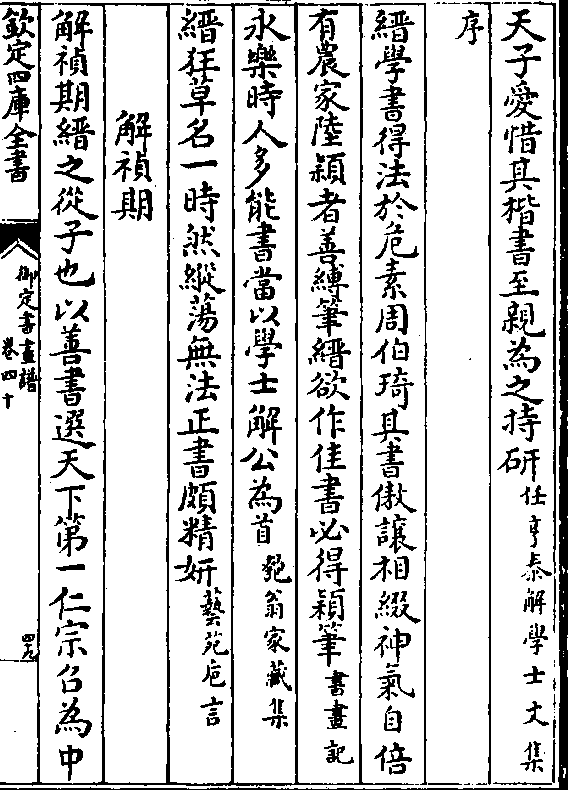 天子愛惜其楷書至親為之持硏任亨泰解學士文集
序
縉學書得法於危素周伯琦其書傲讓相綴神氣自倍
有農家陸穎者善縛筆縉欲作佳書必得穎筆書畫記
永樂時人多能書當以學士解公為首匏翁家藏集
縉狂草名一時然縱蕩無法正書頗精妍藝苑巵言
解禎期
解禎期縉之從子也以善書選天下第一仁宗召為中
欽定四庫全書
御定書畫譜
卷四十
四九